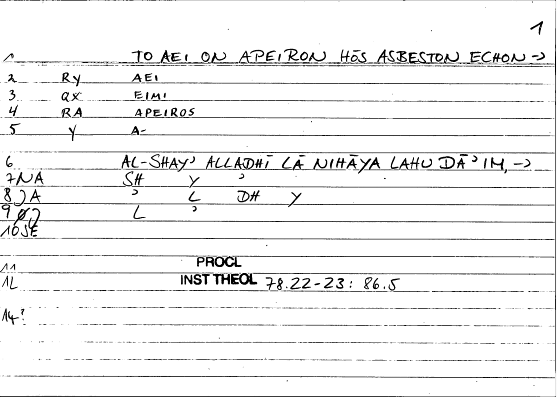 1
1 TO AEI ON APEIRON HŌS ASBESTON ECHON →
2 Ry AEI
3 ax EIMI
4 RA APEIROS
5 y A-
6 AL-SHAYʾ ALLADHĪ LĀ NIHĀYA LAHU DĀʾIM, →
7 NA SH Y ʾ
8 )A ʾ L DH Y
9 L ʾ
10 SE
11 PROCL
12 INST THEOL 78.22-23: 86.5
14?